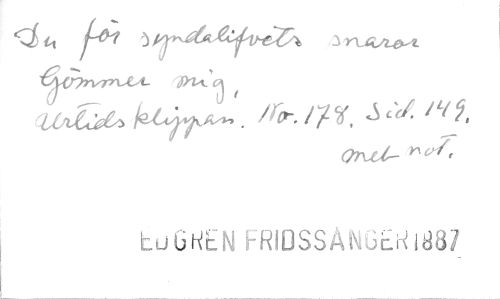 Du för syndalifvets snaror
Gömmer mig,
Urtidsklippan. No. 178. Sid. 149.
med not.
EDGREN FRIDSSÅNGER 1887